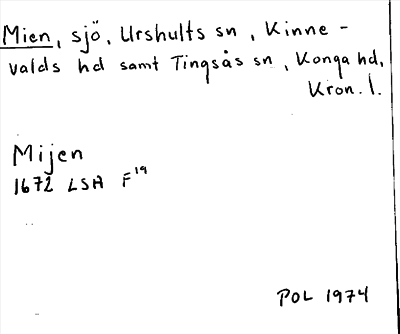 Mien, sjö, Urshults sn, Kinne-
valds hd samt Tingsås sn, Konga hd,
Kron. l.
Mijen
1672 LSA F¹⁹
POL 1974